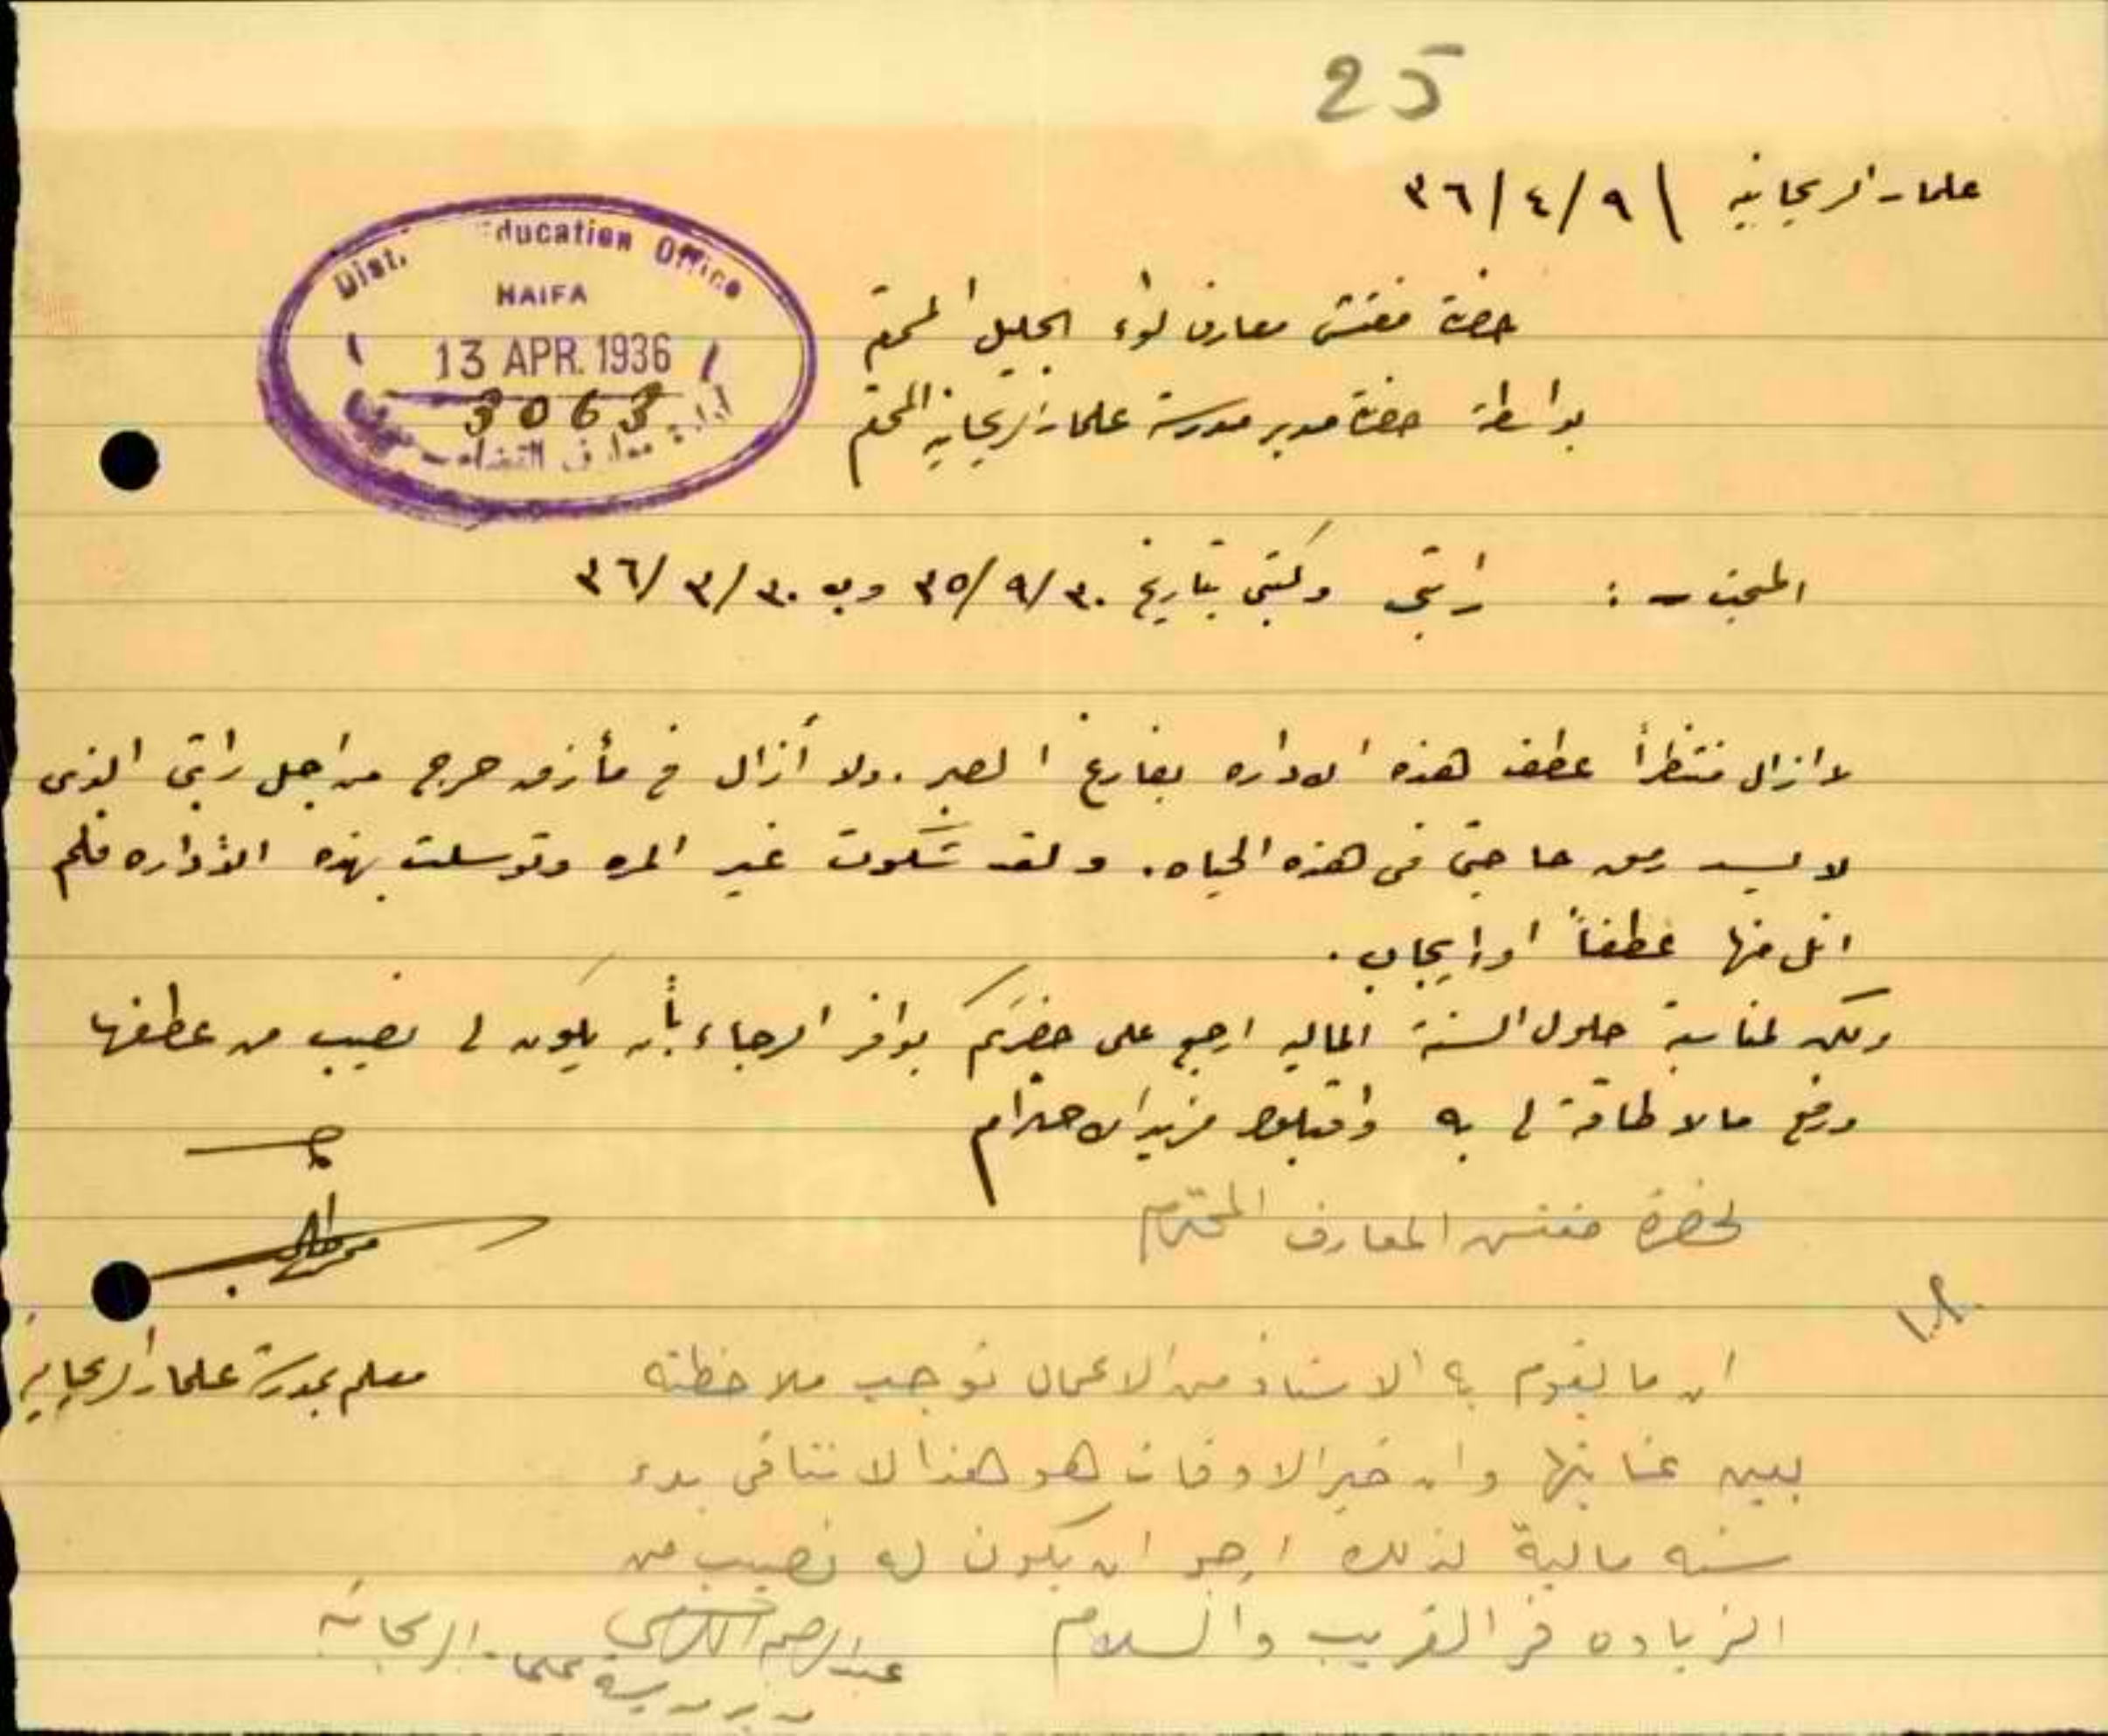 25
علما - الريحانيه / ٩ / ٤ / ٣٦
Dist. Education Office
HAIFA
13 APR. 1936
3063
حضرة مفتش معارف لواء الجليل المحترم
بواسطة حضرة مدير مدرسة علما - الريحانيه المحترم
راتبي وكتبي بتاريخ ٣٠ / ٩ / ٣٥ وب ٣٠ / ٣ / ٣٦
لا ازال منتظراً عطف هذه الاداره بفارغ الصبر . ولا أزال في مأزق حرج من اجل راتبي الذي
لا يسد رمق حاجتي في هذه الحياه . ولقد شكوت غير المره وتوسلت بهذه الأداره فلم
انل منها عطفاً او إيجاب .
ولكن لمناسبة حلول السنة الماليه ارجع على حضرتكم بوافر الرجاء بأن يكون لي نصيب من عطفها
ورفع مالا طاقة لي به واقبلوا مزيد الاحترام
لحضرة مفتش المعارف المحترم
معلم بمدرسة علما - الريحانيه
ان ما يقوم به الاستاذ من الاعمال توجب ملاحظته
بعين عنايتها وان خير الاوقات هو هذا لا نتافى بدء
سنه مالية لذلك ارجو ان يكون له نصيب من
الزياده في القريب والسلام
عبد الرحيم
مدير مدرسة علما - الريحانيه